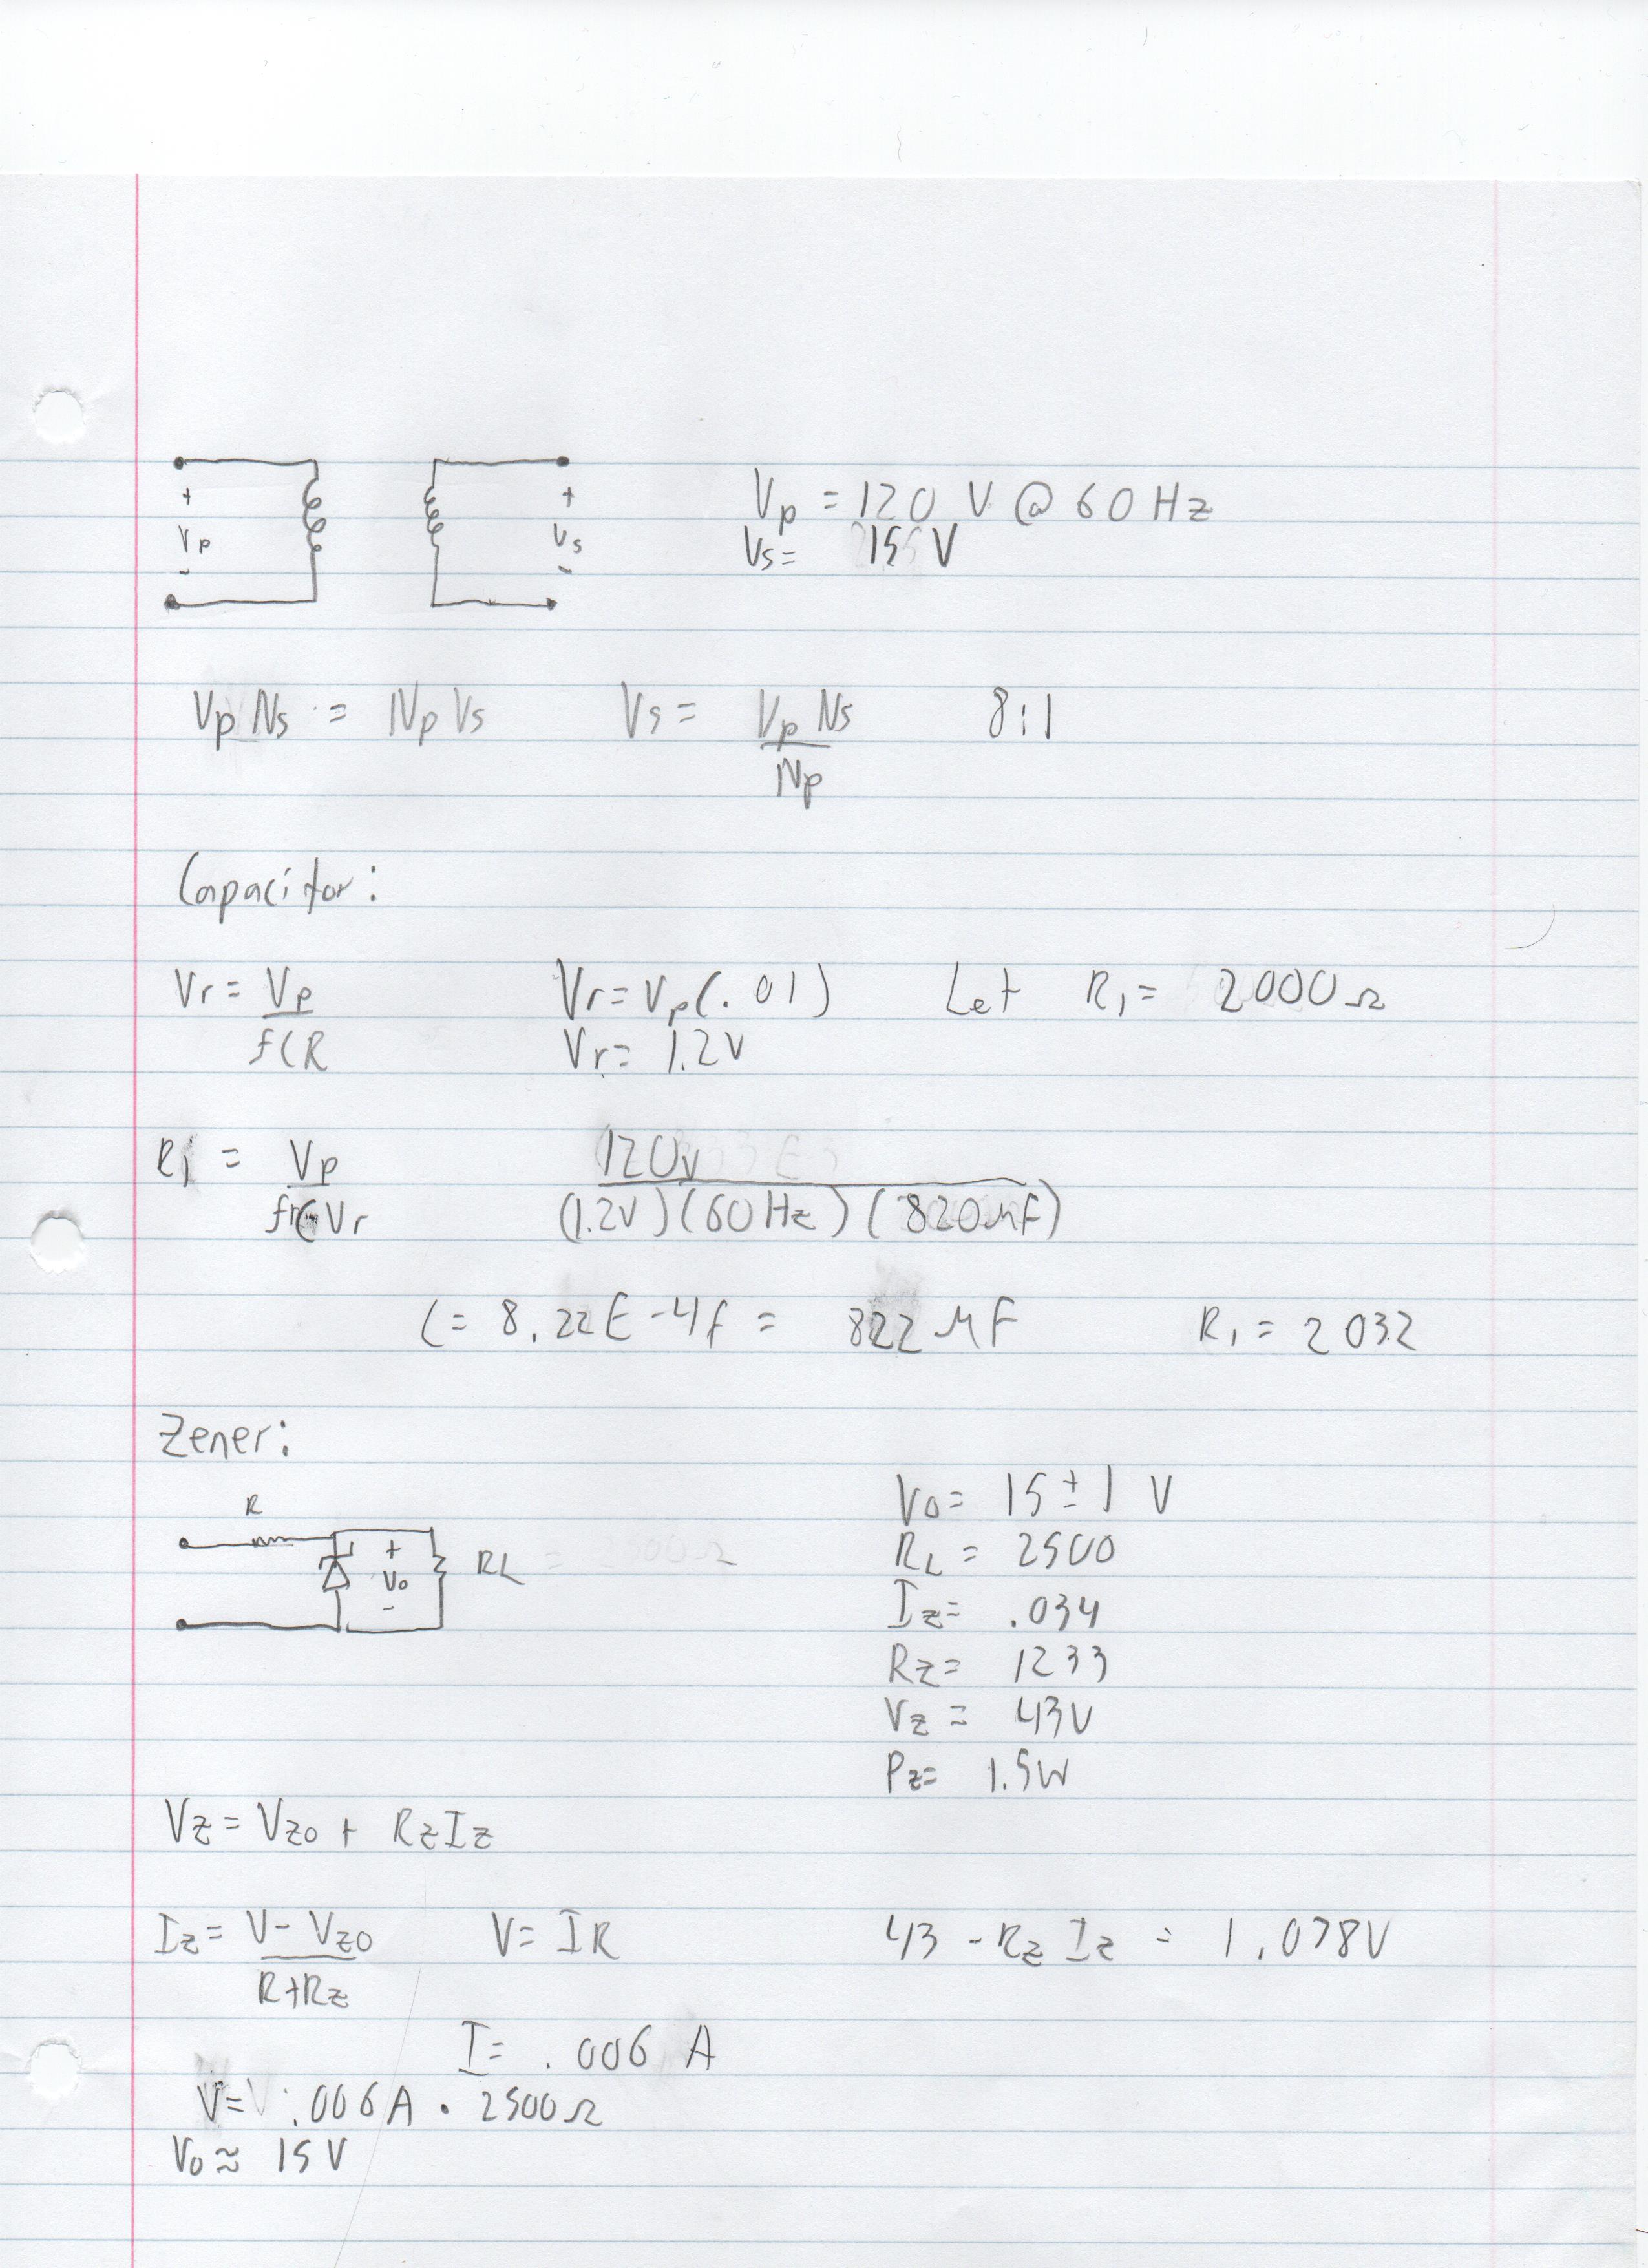 Vp = 120 V @ 60 Hz
Vs = 15 V
+ Vp -
+ Vs -
Vp Ns = Np Vs    Vs = Vp Ns / Np    8:1
Capacitor:
Vr = Vp / fCR    Vr = Vp(.01)    Let R1 = 2000Ω
Vr = 1.2V
R1 = Vp / fCVr    120V / (1.2V)(60Hz)(820μF)
C = 8.22E-4f = 822 μF    R1 = 2032
Zener:
R
+ Vo -
RL = 2500Ω
Vo = 15 ± 1 V
RL = 2500
Iz = .034
Rz = 1233
Vz = 43V
Pz = 1.5W
Vz = Vzo + RzIz
Iz = V - Vzo / R+Rz    V = IR    43 - Rz Iz = 1.078V
I = .006 A
V = .006A · 2500Ω
Vo ≈ 15 V